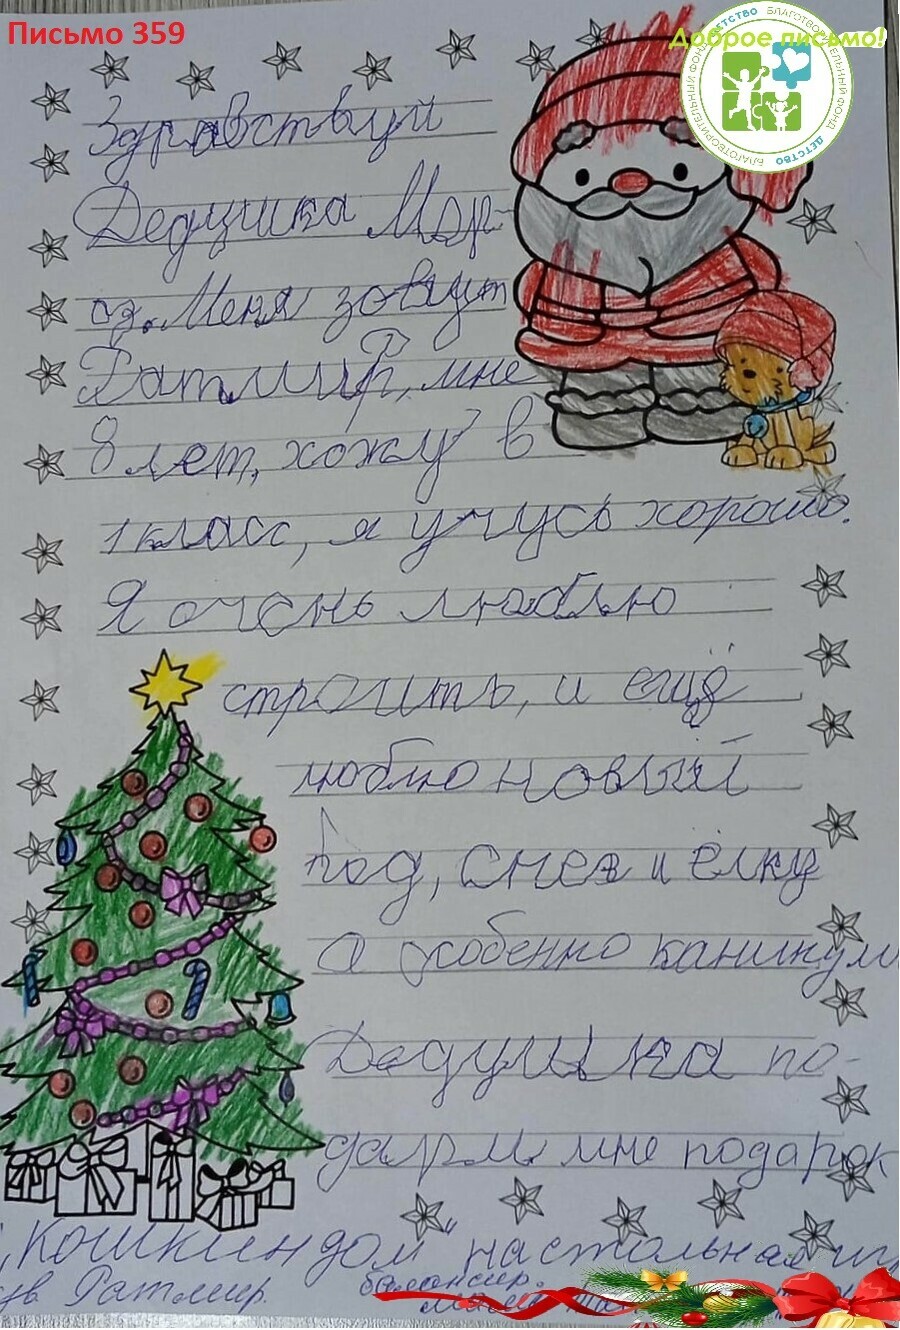 Письмо 359
Доброе письмо!
ДЕТСТВО БЛАГОТВОРИТЕЛЬНЫЙ ФОНД ДЕТСТВО БЛАГОТВОРИТЕЛЬНЫЙ ФОНД
Здравствуй
Дедушка Мор-
оз. Меня зовут
Ратмир, мне
8 лет, хожу в
1 класс, я учусь хорошо.
Я очень люблю
строить, и ещё
люблю новый
год, снег и ёлку
а особенно каникулы
Дедушка по-
дари мне подарок
"Кошкин дом" настольная
Ратмир. балансир.